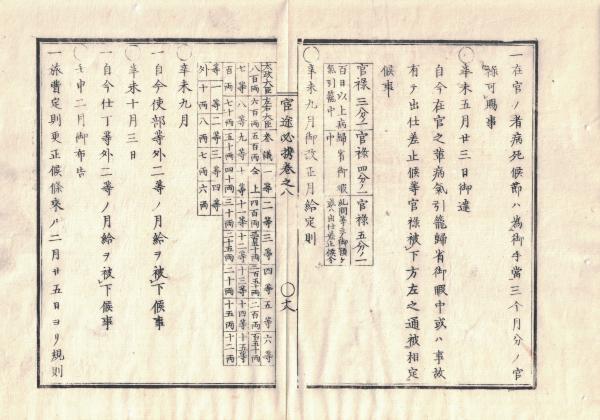 一在官ノ者病死候節ハ為御手當三个月分ノ官
祿可賜事
〇辛未五月廿三日御達
自今在官之輩病氣引籠歸省御暇中或ハ事故
有テ出仕差止候等官祿被下方左之通被相定
候事
官祿三分ノ一官祿四分ノ一官祿五分ノ一
百日以上病氣引籠中
歸省御暇中
〇辛未九月御改正月給定則
官途必携卷之八
〇十八
太政大臣 左右大臣 參議 一等 二等 三等 四等 五等 六等
八百両 六百両 五百両
七等 八等 九等 十等 十一等 十二等 十三等 十四等 十五等
百両 七十両 五十両 四十両 三十両 二十五両 二十両 十五両 十二両
等外 一等 二等 三等 四等
十両 八両 七両 六両
〇辛未九月
一自今使部等外二等ノ月給ヲ被下候事
〇辛未十月三日
一自今仕丁等外二等ノ月給ヲ被下候事
〇壬申二月御布告
一旅費定則更正候條來ル二月廿五日ヨリ規則